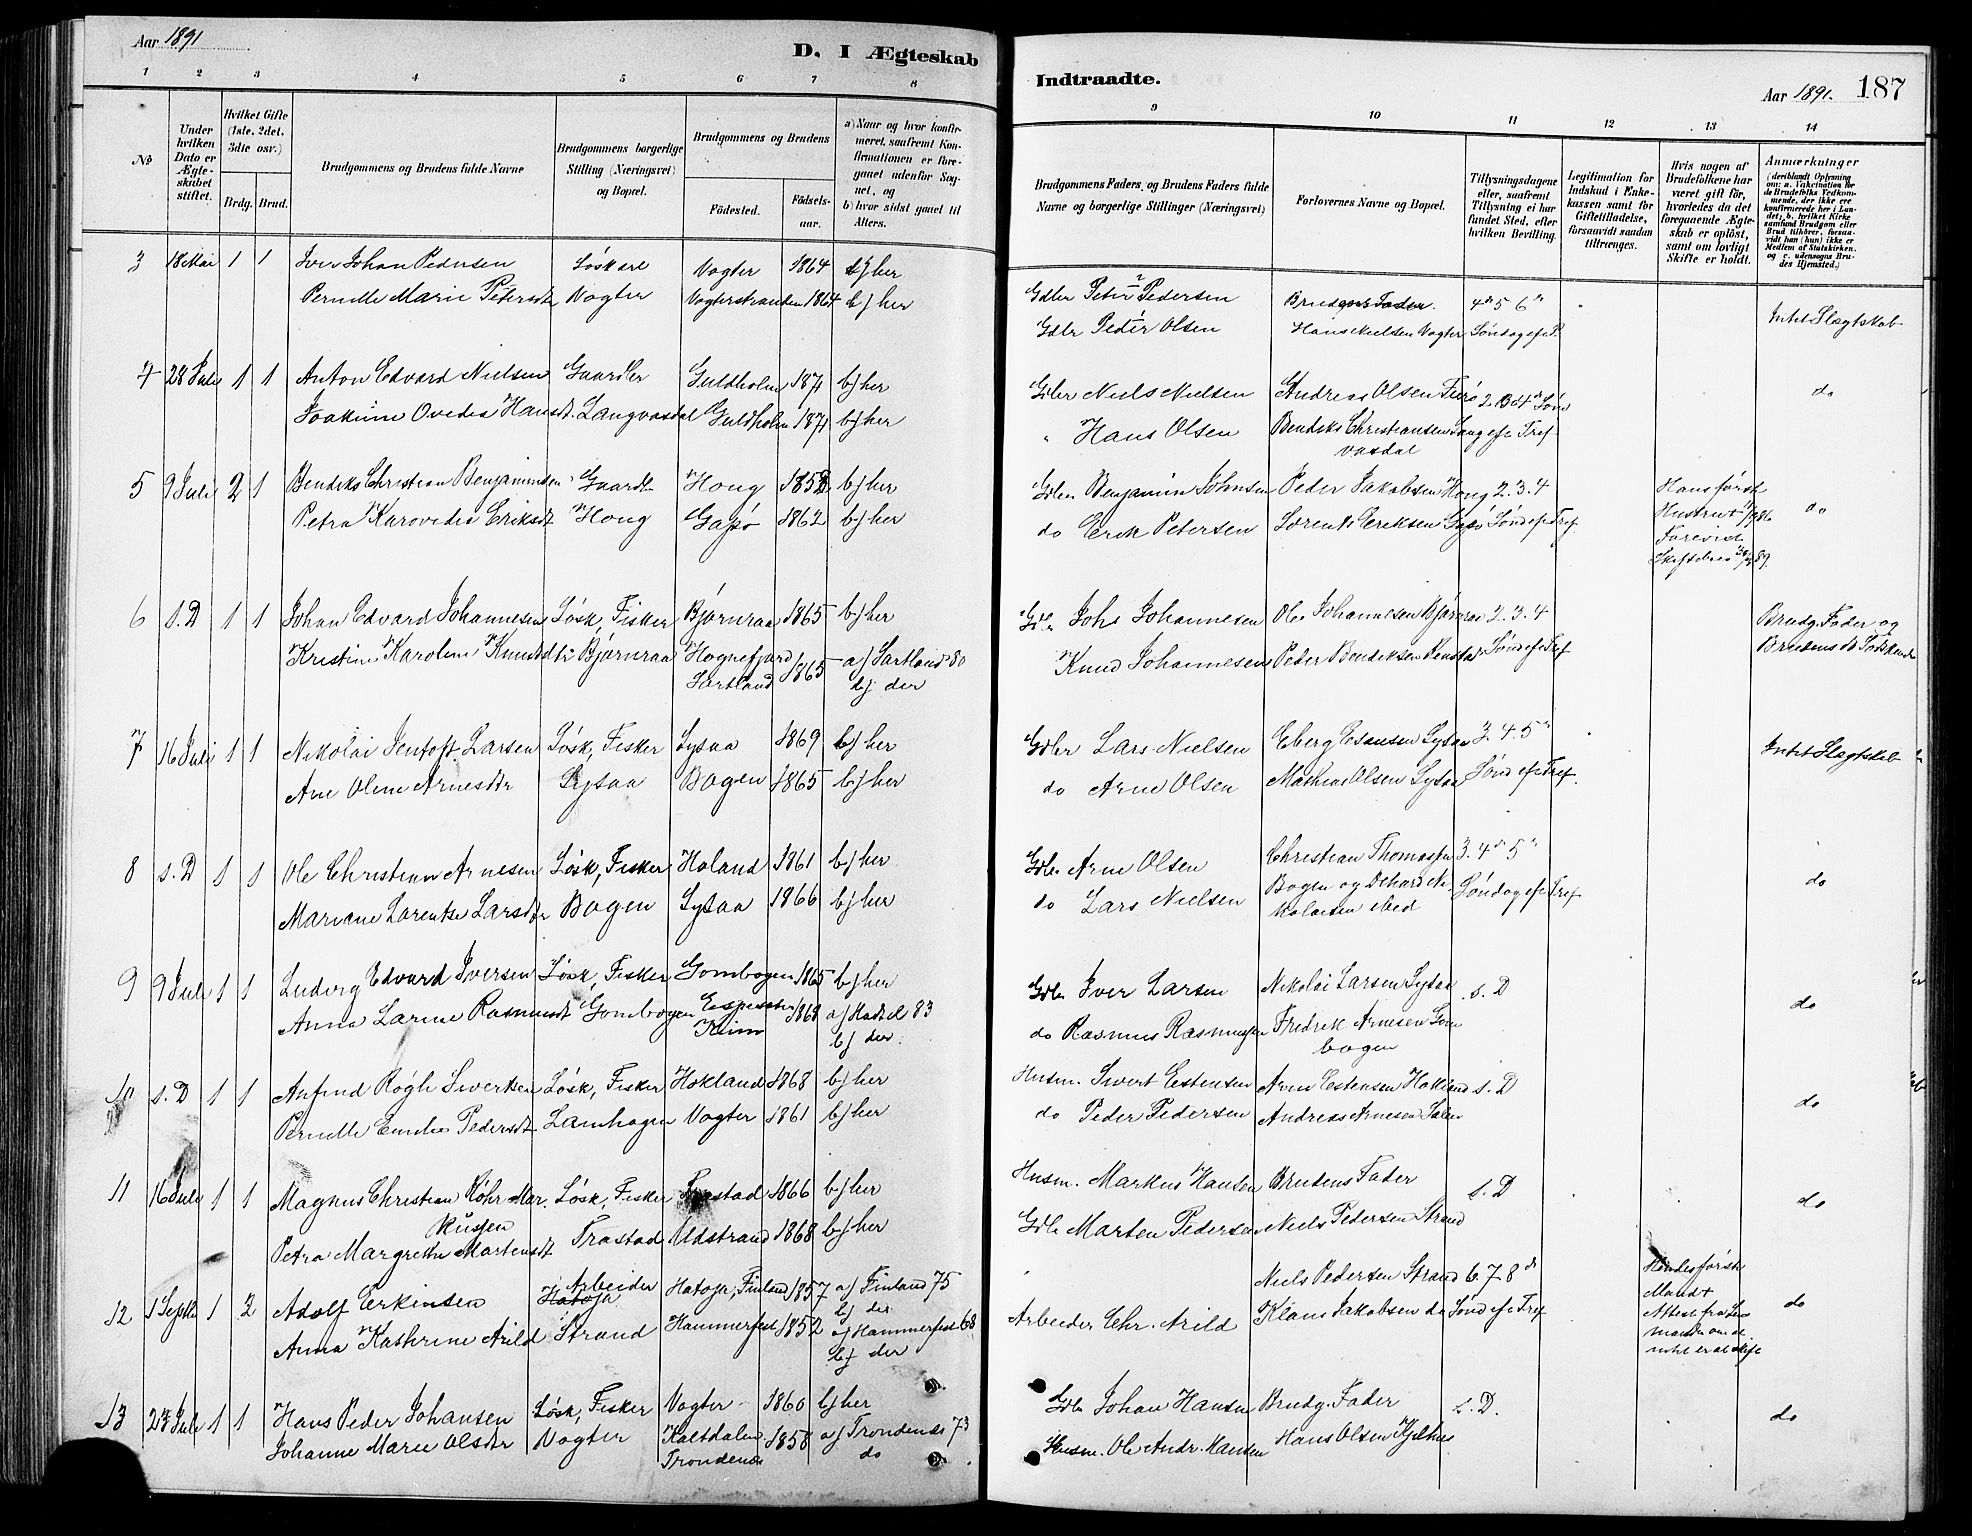 Aar 1891
D. I Ægteskab
1 2 3 4 5 6 7 8
No
Under hvilken Dato er Ægteskabet stiftet.
Hvilket Gifte (1ste, 2det, 3die osv.)
Brdg. Brud.
Brudgommens og Brudens fulde Navne
Brudgommens borgerlige Stilling (Næringsvei) og Bopæl.
Brudgommens og Brudens
Födested. Födselsaar.
a) Naar og hvor konfirmeret, saafremt Konfirmationen er foregaaet udenfor Sognet, og
b) hvor sidst gaaet til Alters.
3 18 Mai 1 1 Iver Johan Pedersen Løskarl Vogter 1864 b) her
Pernille Marie Petersdt Vogter Vogterstranden 1864 b) her
4 28 Juli 1 1 Anton Edvard Nielsen Gaardbr Guldholm 1871 b) her
Joakime Ovedia Hansdt. Langvasdal Guldholm 1871 b) her
5 9 Juli 2 1 Bendiks Christian Benjaminsen Gaardb Houg 1852 b) her
Petra Karovedia Eriksdt Houg Gapø 1862 b) her
6 s. D 1 1 Johan Edvard Johannesen Løsk, Fisker Bjørnraa 1865 b) her
Kristine Karoline Knudsdtr Bjørnraa Hognefjord 1865 a) Sortland 80
Sortland b) der
7 16 Juli 1 1 Nikolai Jentoft Larsen Løsk, Fisker Sysaa 1869 b) her
Ane Oline Arnesdtr Sysaa Bogen 1865 b) her
8 s. D 1 1 Ole Christian Arnesen Løsk, Fisker Holand 1861 b) her
Mariane Lorentse Larsdtr Bogen Sysaa 1866 b) her
9 9 Juli 1 1 Ludvig Edvard Iversen Løsk, Fisker Gombogen 1865 b) her
Anna Larine Rasmusdt Gombogen 1868 a) Kadsel 83
b) der
10 s. D 1 1 Anfind Røgh Sivertsen Løsk, Fisker Hokland 1868 b) her
Pernille Emilie Pedersdt Lamhagen Vogter 1861 b) her
11 16 Juli 1 1 Magnus Christian Røhr Mar. Løsk, Fisker Trastad 1866 b) her
kussen
Petra Margrethe Martensdt Trastad Udstrand 1868 b) her
12 1 Septb 1 2 Adolf Erkinsen Arbeider Hatoja, Finland 1857 a) Finland 75
Hatoja b) der
Anna Kathrine Arild Strand Hammerfest 1852 a) Hammerfest 68
b) der
13 23 Juli 1 1 Hans Peder Johansen Løsk, Fisker Vogter 1860 b) her
Johanne Marie Olsdtr Vogter Kaltdalen 1858 a) Trondenes 73
Trondenæs do
Indtraadte.
Aar 1891. 187
9 10 11 12 13 14
Brudgommens Faders, og Brudens Faders fulde Navne og borgerlige Stillinger (Næringsvei)
Forlovernes Navne og Bopæl.
Tillysningsdagene eller, saafremt Tillysning ei har fundet Sted, efter hvilken Bevilling.
Legitimation for Indskud i Enkekassen samt for Giftetilladelse, forsaavidt saadan tiltrænges.
Hvis nogen af Brudefolkene har været gift för, hvorledes da det foregaaende Ægteskab er oplöst, samt om lovligt Skifte er holdt.
Anmærkninger (deriblandt Oplysning om: a. Vakcination for de Brudefolks Vedkommende, der ikke ere konfirmerede her i Landet; b. hvilket Kirkesamfund Brudgom eller Brud tilhörer, forsaavidt han (hun) ikke er Medlem af Statskirken, og c. udensogns Brudes Hjemsted.)
Gdbr Peter Pedersen Brudens Fader. 4 5 6
Gdbr Peder Olsen Hans Nielsen Vogter Søndag ef P. Intet Slægtskab
Gdbr Niels Nielsen Andreas Olsen 2. 3 4 Søn do
" Hans Olsen Bendiks Christiansen Lang ef Tref
vasdal
Gdbr Benjamin Johnsen Peder Jakobsen Houg 2. 3. 4 Hans første
do Erik Petersen Sørend Eriksen Gapø Sønd ef Tref. do
6 s. Gdbr Johs Johannesen Ole Johannesen Bjørnraa 2. 3. 4 Brudg. Fader og
Knud Johannesen Peder Bendiksen Sønd ef Tref Brudens do
Gdbr Lars Nielsen Eberg Esausen Sysaa 3. 4. 5 Intet Slagtskab
do Arne Olsen Mathias Olsen Sysaa Sønd ef Tref.
Gdbr Arne Olsen Christian Thomassen 3. 4 5
do Lars Nielsen Bogen og Søndag ef Tref do
kolaisen ibid
Gdbr Iver Larsen Nikolai Larsen Sysaa s. D
do Rasmus Rasmussen Fredrik Arnesen Gom do
bogen
Husm. Sivert Estensen Arne Estensen Hokland s. D
do Peder Pedersen Andreas Arnesen do
Husm. Markus Hansen Brudens Fader s. D
Gdbr Marten Pedersen Niels Pedersen Strand do
Niels Pedersen Strand 6. 7. 8 Hendes første
Mand +
Arbeider Chr. Arild Klaus Jakobsen do Sønd ef Tref do
Gdbr Johan Hansen Brudg. Fader s. D.
Husm. Ole Andr. Hansen Hans Olsen Kjelhus do